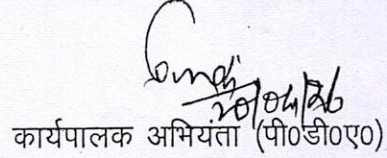 20/04/26
कार्यपालक अभियंता (पी0डी0ए0)